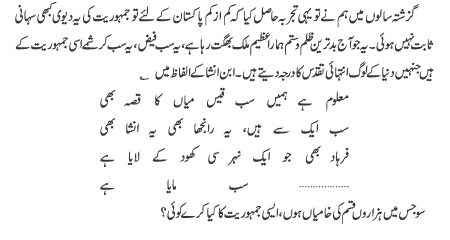 گزشتہ سالوں میں ہم نے تو یہی تجربہ حاصل کیا کہ کم از کم پاکستان کے لئے تو جمہوریت کی یہ دیوی کبھی سہانی
ثابت نہیں ہوئی۔ یہ جو آج بدترین ظلم و ستم ہمارا عظیم ملک بھگت رہا ہے، یہ سب فیض، یہ سب کرشمے اسی جمہوریت کے
ہیں جنہیں دنیا کے لوگ انتہائی تقدس کا درجہ دیتے ہیں۔ ابن انشا کے الفاظ میں ؎
معلوم ہے ہمیں سب قیس میاں کا قصہ بھی
سب ایک سے ہیں، یہ رانجھا بھی یہ انشا بھی
فرہاد بھی جو ایک نہر سی کھود کے لایا ہے
.................. سب مایا ہے
سو جس میں ہزاروں قسم کی خامیاں ہوں، ایسی جمہوریت کا کیا کرے کوئی؟